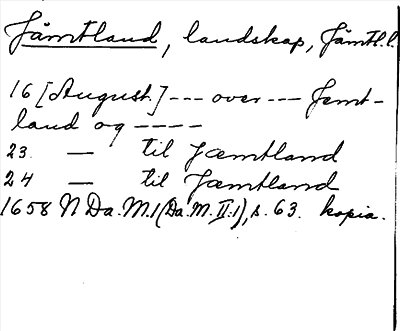 Jämtland, landskap, Jämtl.l.
16 [August.] --- over --- Jemt-
land og ----
23. — til Jæmtland
24 — til Jæmtland
1658 N Da.M.1 (Da.M.II:1), s. 63. kopia.